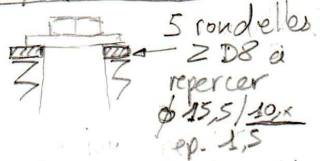 5 rondelles
Z D8 à
repercer
ϕ 15,5 / 10,x
ep. 1,5